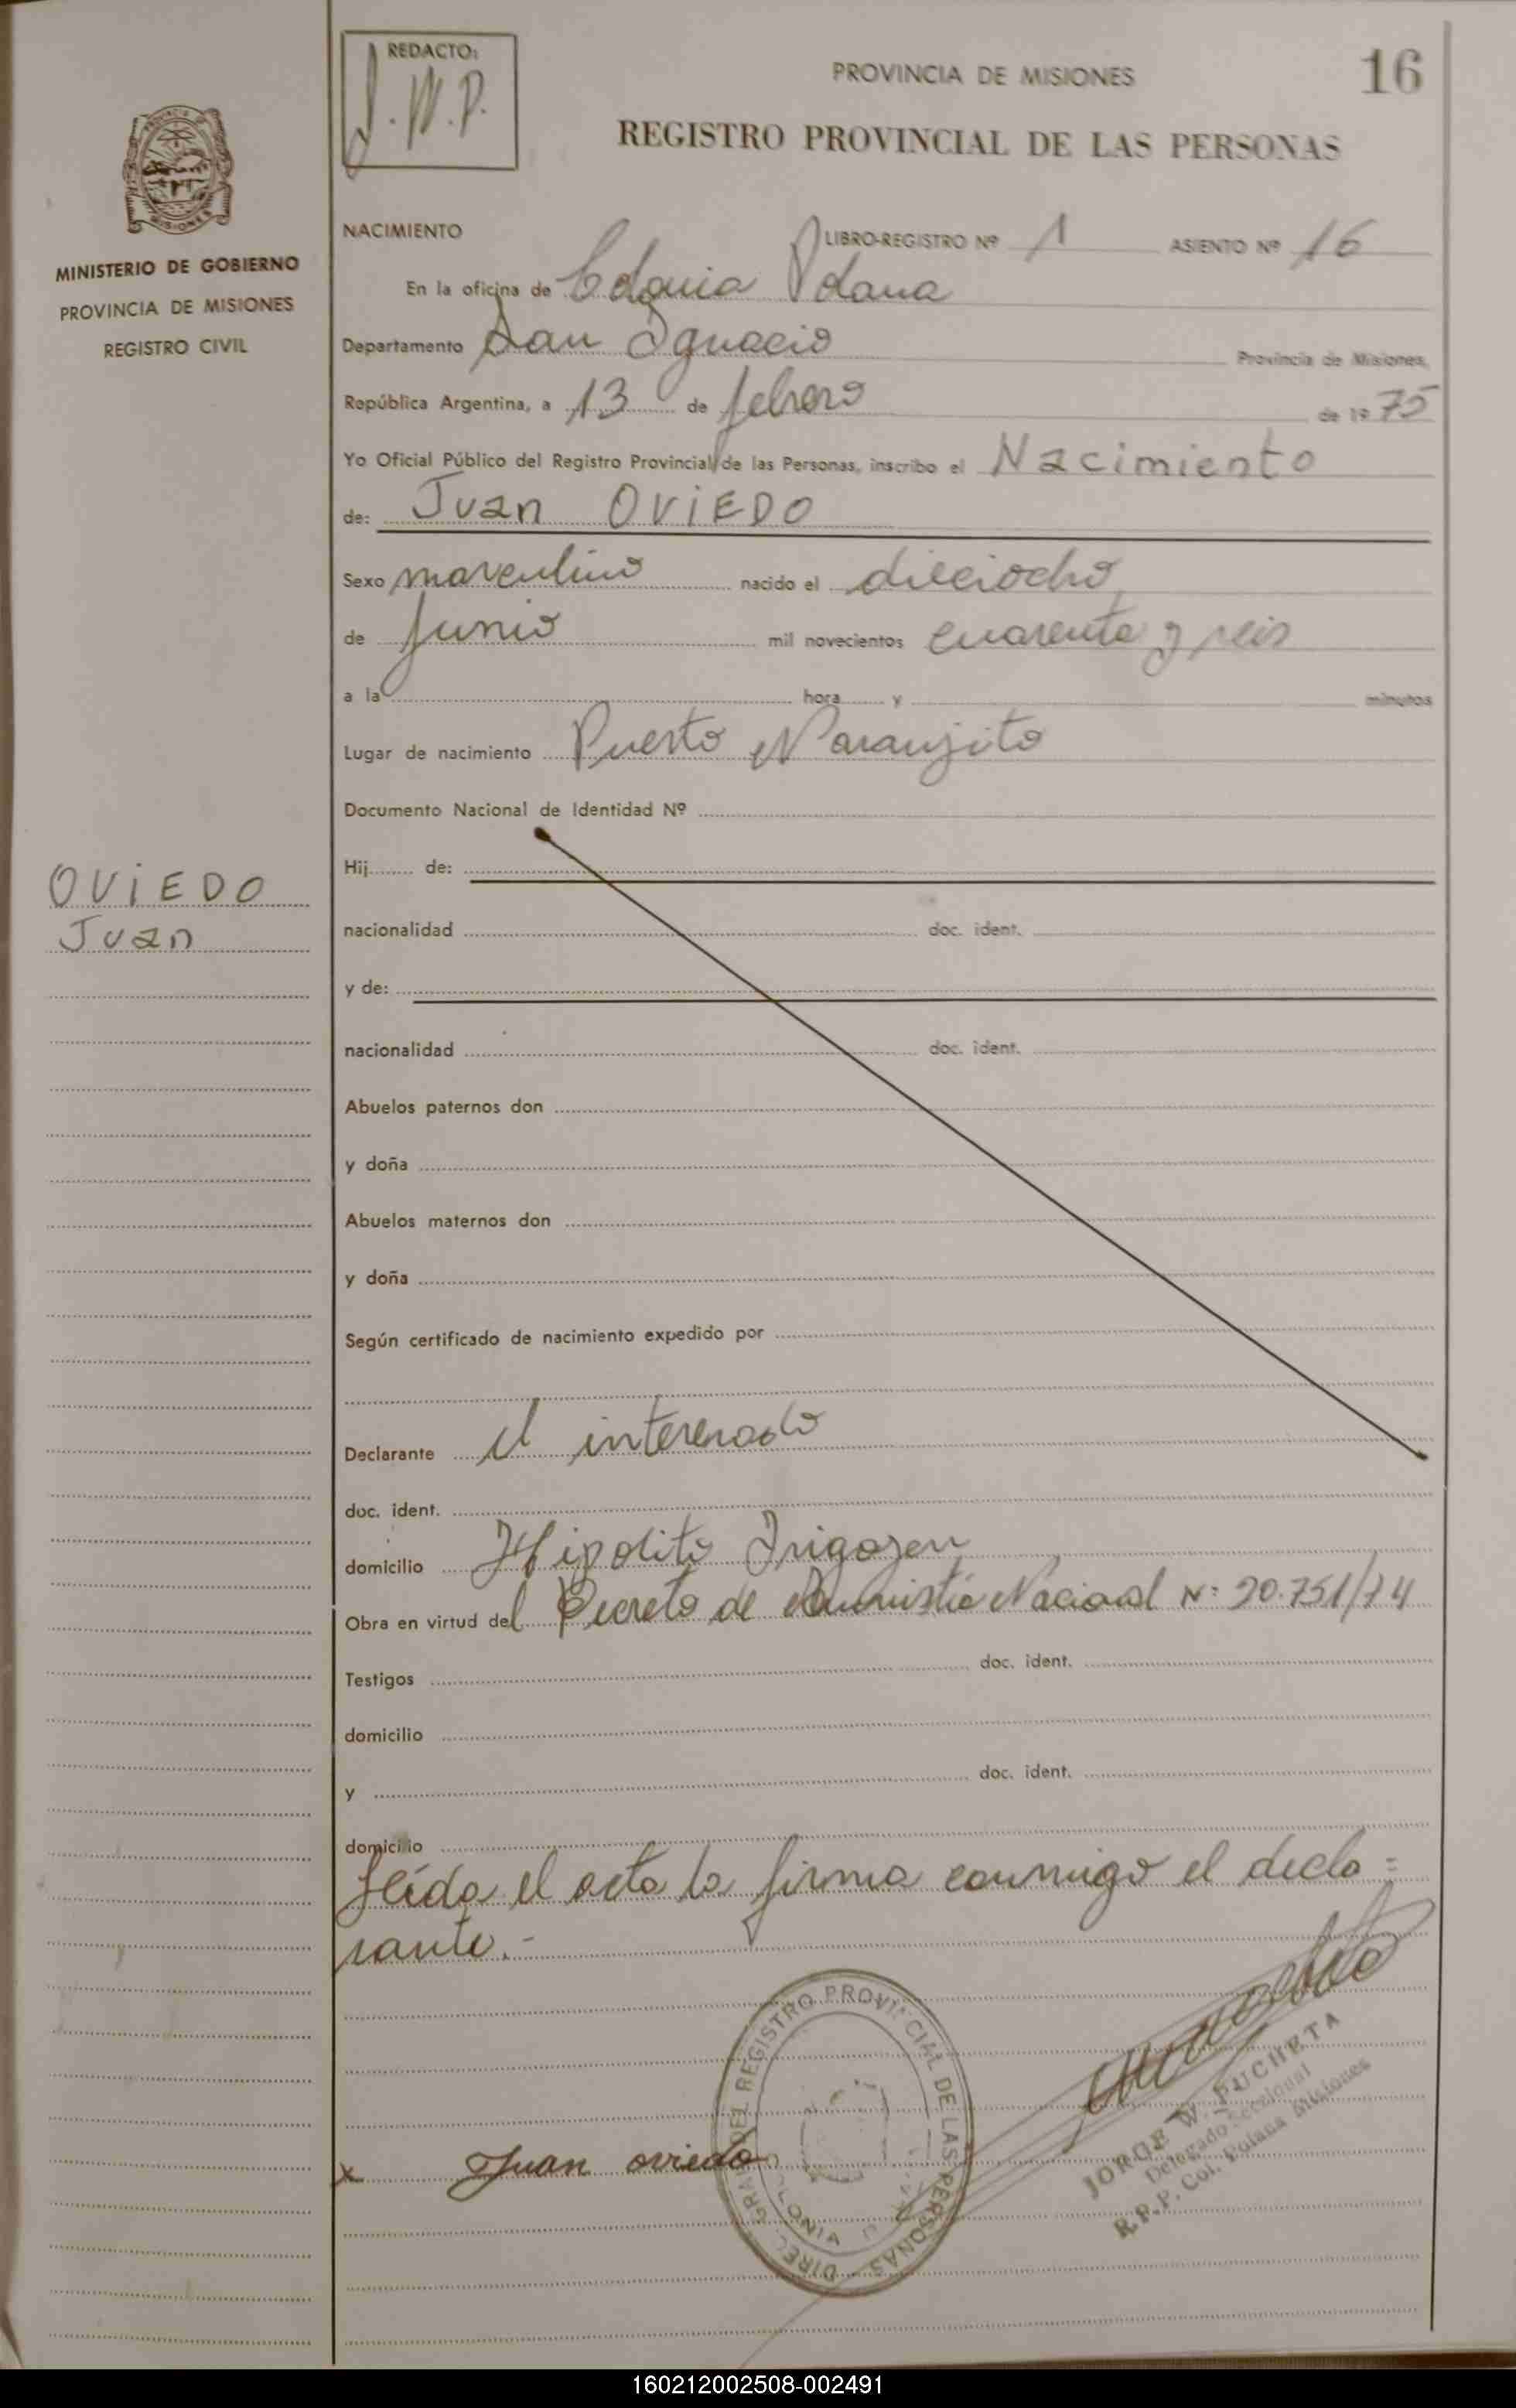 REDACTO:
J.W.P.
PROVINCIA DE MISIONES
16
REGISTRO PROVINCIAL DE LAS PERSONAS
MISIONES
MINISTERIO DE GOBIERNO
PROVINCIA DE MISIONES
REGISTRO CIVIL
NACIMIENTO LIBRO-REGISTRO Nº 1 ASIENTO Nº 16
En la oficina de Colonia Polana
Departamento San Ignacio Provincia de Misiones,
República Argentina, a 13 de febrero de 1975
Yo Oficial Público del Registro Provincial de las Personas, inscribo el Nacimiento
de: Juan OVIEDO
Sexo masculino nacido el dieciocho
de Junio mil novecientos cuarenta y seis
a la hora y minutos
Lugar de nacimiento Puerto Naranjito
Documento Nacional de Identidad Nº
OVIEDO
Juan
Hij de:
nacionalidad doc. ident.
y de:
nacionalidad doc. ident.
Abuelos paternos don
y doña
Abuelos maternos don
y doña
Según certificado de nacimiento expedido por
Declarante el interesado
doc. ident.
domicilio Hipolito Irigoyen
Obra en virtud del Decreto de Amnistia Nacional N: 20.751/74
Testigos doc. ident.
domicilio
y doc. ident.
domicilio
Leída el acta la firma conmigo el decla=
rante.-
DIREC. GRAL. DEL REGISTRO PROVINCIAL DE LAS PERSONAS
COLONIA
x Juan oviedo
JORGE W. PUCHETA
Delegado Seccional
R.P.P. Col. Polana Misiones
160212002508-002491